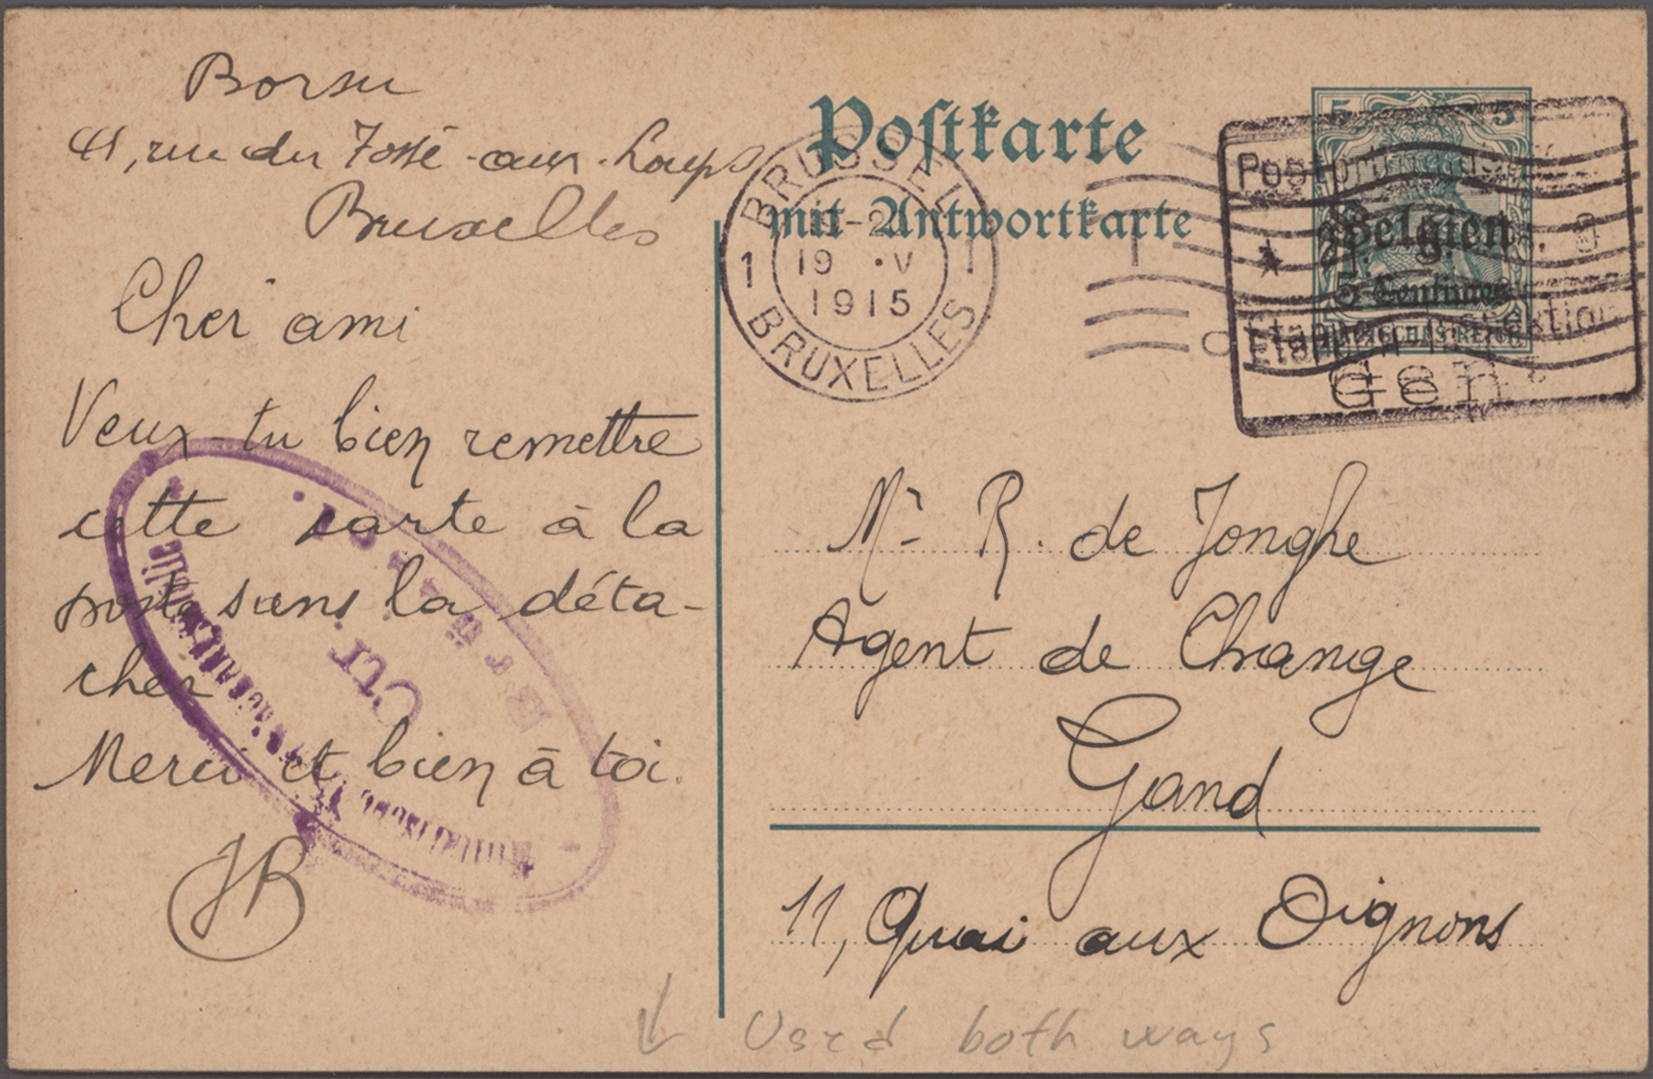 Borsu
41, rue du Fossé-aux-Loups
Bruxelles
Cher ami
Veux-tu bien remettre
cette carte à la
poste sans la déta-
cher
Merci et bien à toi.
JB
Postkarte
mit Antwortkarte
BRUSSEL
1 1
19 · V
1915
BRUXELLES
5 5
Belgien
5 Centimes
Etappen Inspektion
Gent
Mr R. de Jonghe
Agent de Change
Gand
11, Quai aux Oignons
Used both ways